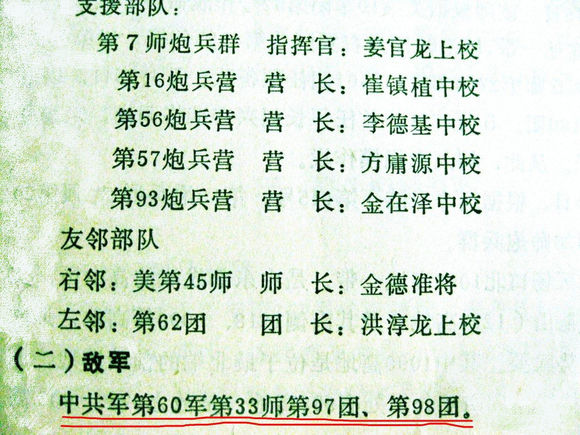 支援部队：
第7师炮兵群 指挥官：姜官龙上校
第16炮兵营 营 长：崔镇植中校
第56炮兵营 营 长：李德基中校
第57炮兵营 营 长：方庸源中校
第93炮兵营 营 长：金在泽中校
友邻部队
右邻：美第45师 师 长：金德准将
左邻：第62团 团 长：洪淳龙上校
（二）敌军
中共军第60军第33师第97团、第98团。